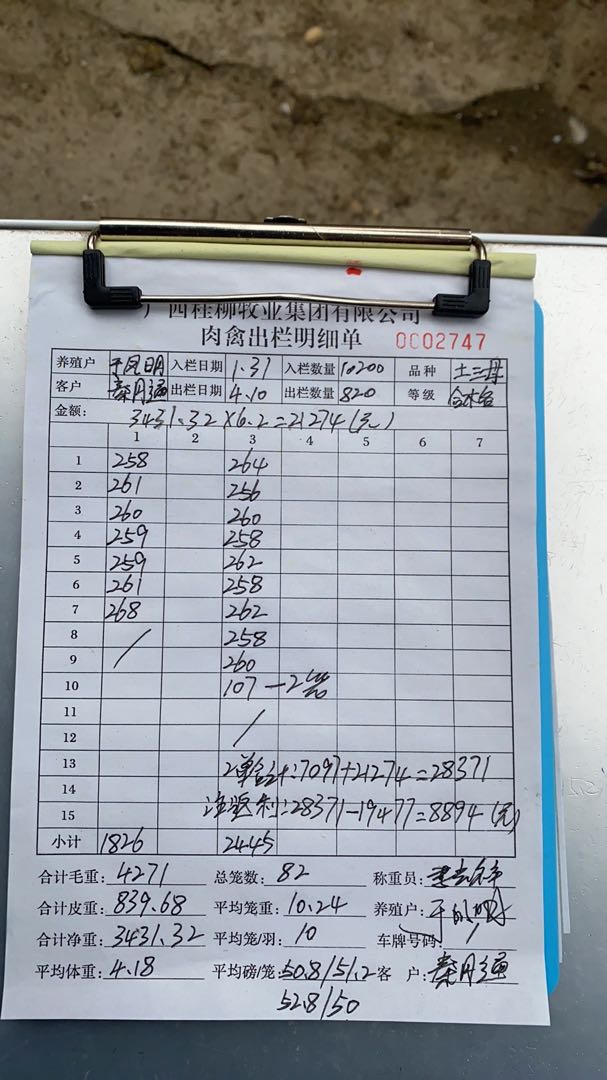 广西桂柳牧业集团有限公司
肉禽出栏明细单 0002747
养殖户 于凤明 入栏日期 1.31 入栏数量 10200 品种 土三母
客户 秦月通 出栏日期 4.10 出栏数量 820 等级 合格
金额: 3431.32×6.2=21274(元)
1 2 3 4 5 6 7
1 258 264
2 261 256
3 260 260
4 259 258
5 259 262
6 261 258
7 268 262
8 / 258
9 260
10 107-2笼
11
12 /
13 2单合计:7097+21274=28371
14
15 净返利:28371-19477=8894(元)
小计 1826 2445
合计毛重: 4271 总笼数: 82 称重员:
合计皮重: 839.68 平均笼重: 10.24 养殖户: 于凤明
合计净重: 3431.32 平均笼/羽: 10 车牌号码: /
平均体重: 4.18 平均磅/笼: 50.8/51.2 客 户: 秦月通
52.8/50